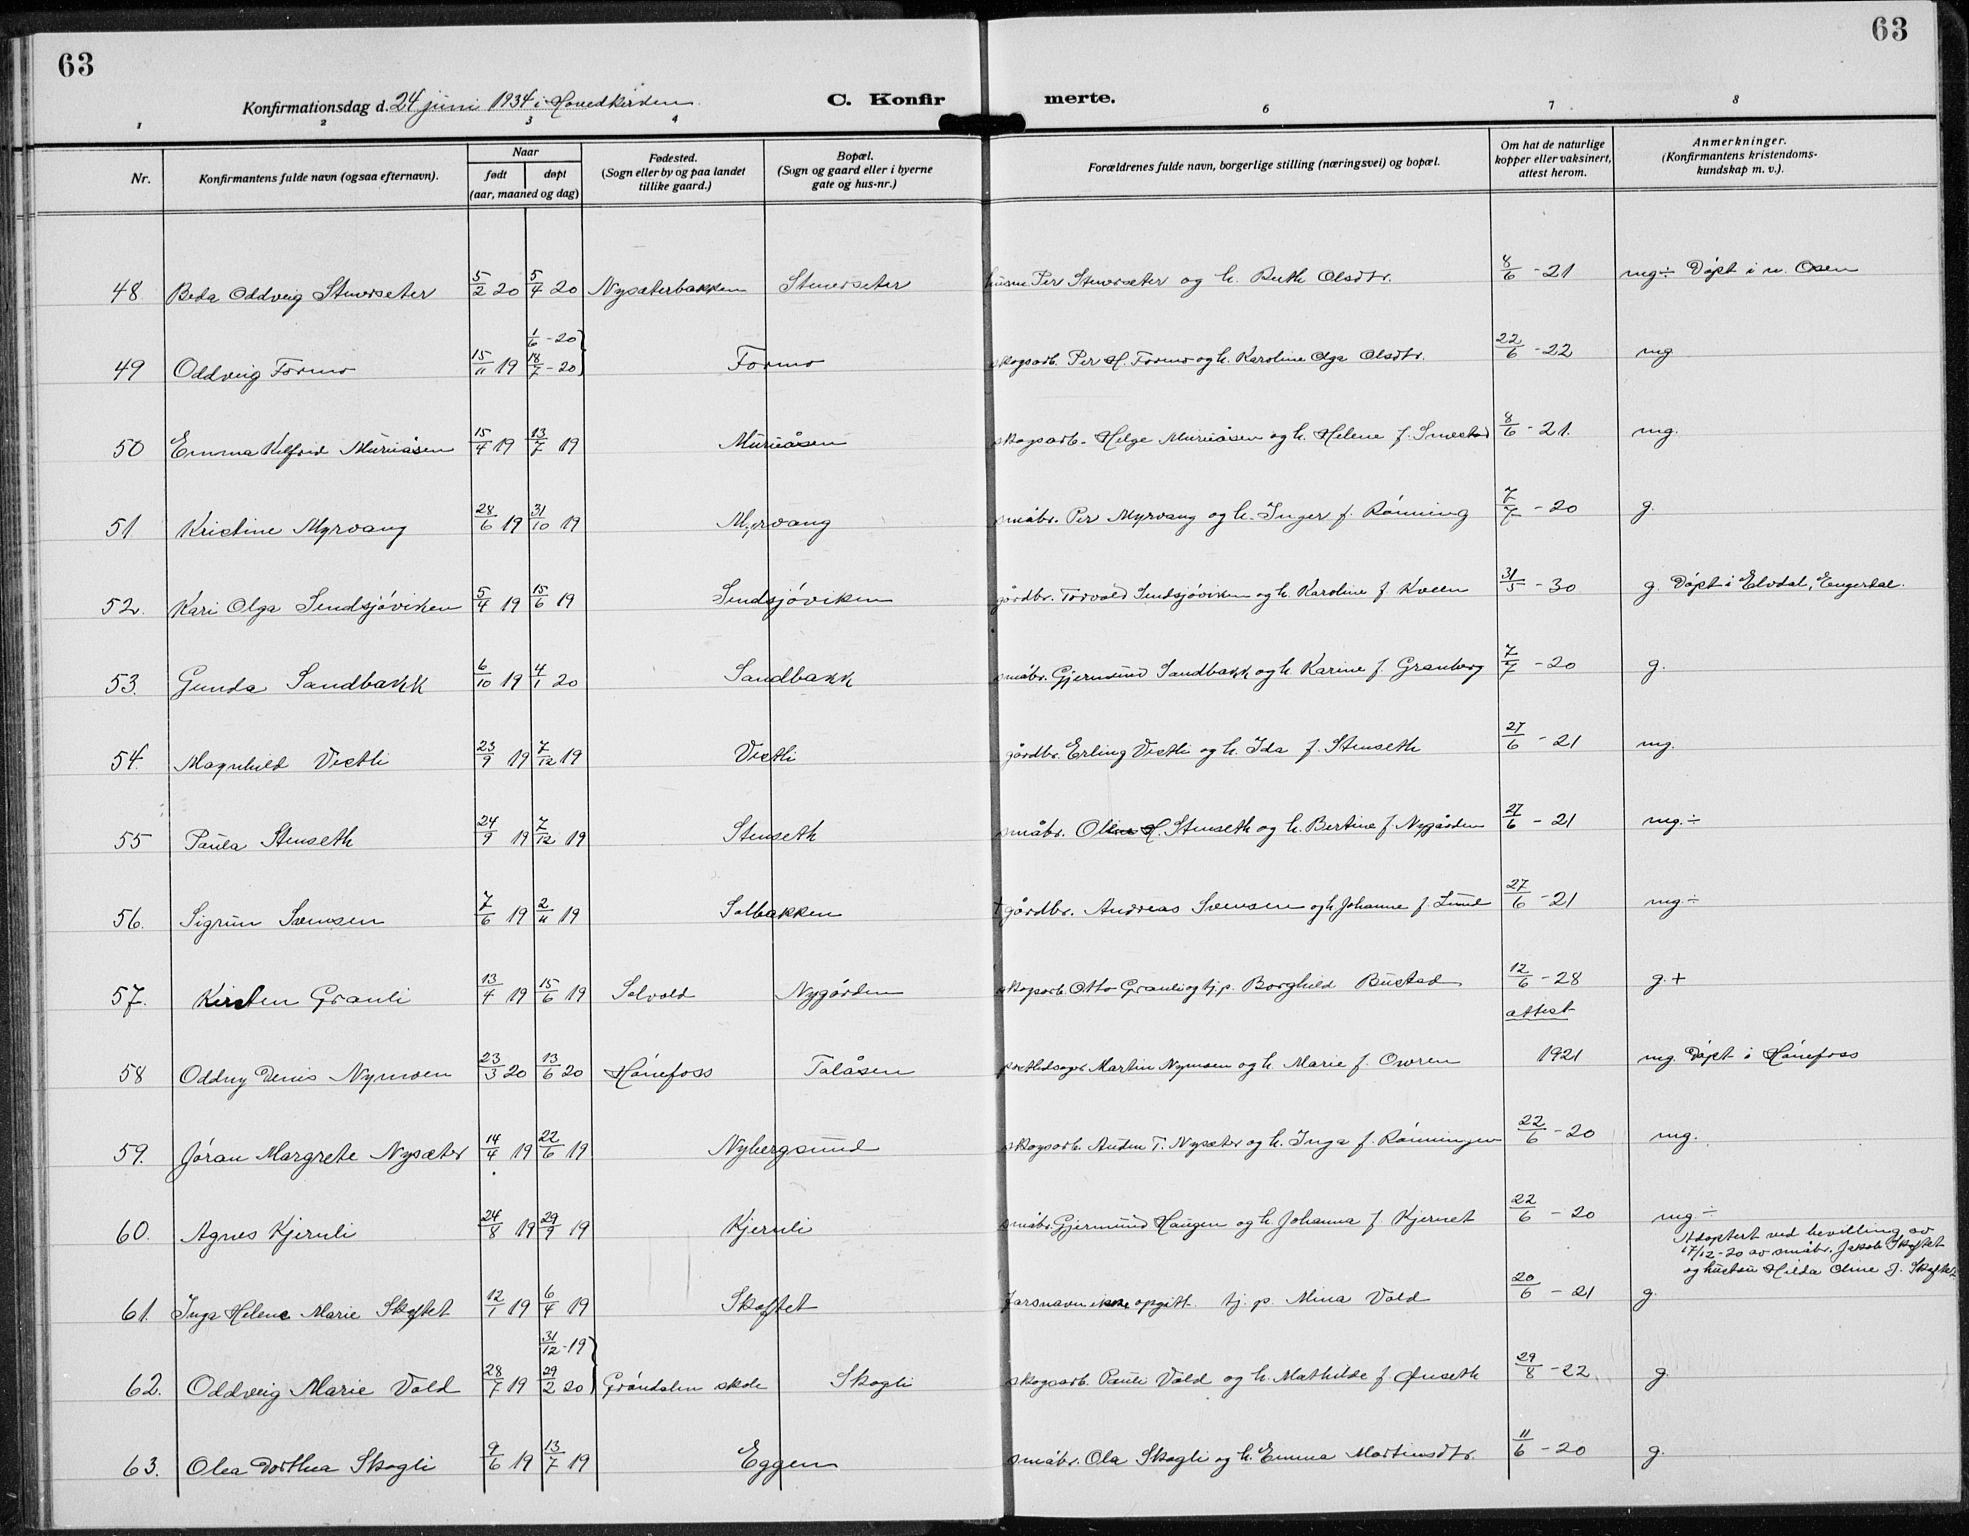 63
63
Konfirmationsdag d. 24 juni 1934 i Hovedkirken
C. Konfir merte.
1 2 3 4 6 7 8
Nr.
Konfirmantens fulde navn (ogsaa efternavn).
Naar
født døpt
(aar, maaned og dag)
Fødested.
(Sogn eller by og paa landet
tillike gaard.)
Bopæl.
(Sogn og gaard eller i byerne
gate og hus-nr.)
Forældrenes fulde navn, borgerlige stilling (næringsvei) og bopæl.
Om hat de naturlige
kopper eller vaksinert,
attest herom.
Anmerkninger.
(Konfirmantens kristendoms-
kundskap m. v.).
48 Beda Oddveig Stenerseter 5/2 20 5/4 20 Nysæterbakken Stenerseter husm. Per Stenerseter og h. Ruth Olsdtr. 8/6 - 21 mg÷ Døpt i n. Osen
1/6 - 20
49 Oddveig Formo 15/11 19 18/7 - 20 Formo skogsarb. Per H. Formo og h. Karoline Olga Olsdtr. 22/6 - 22 mg
50 Emma Velfrid Muruåsen 15/4 19 13/7 19 Muruåsen skogsarb. Helge Muruåsen og h. Helene f. Smestad 8/6 - 21. mg.
51 Kristine Myrvang 28/6 19 31/10 19 Myrvang småbr. Per Myrvang og h. Inger f. Rönning 7/7 - 20 g.
52. Kari Olga Sendsjöviken 5/4 19 15/6 19 Sendsjöviken gårdbr. Torvald Sendsjöviken og h. Karoline f. Kveen 31/5 - 30 g. Döpt i Elvdal, Engerdal.
53. Gunda Sandbakk 6/10 19 4/1 20 Sandbakk småbr. Gjermund Sandbakk og h. Karine f. Granberg 7/7 - 20 g.
54. Magnhild Vestli 23/9 19 7/12 19 Vestli gårdbr. Erling Vestli og h. Ida f. Stenseth 27/6 - 21 mg.
55 Paula Stenseth 24/9 19 7/12 19 Stenseth småbr. H. Stenseth og h. Bertine f. Nygården 27/6 - 21 mg.÷
56. Sigrun Svensen 7/6 19 2/11 19 Solbakken † gårdbr. Andreas Svensen og h. Johanne f. Lund 27/6 - 21 mg÷
57. Kirsten Granli 13/4 19 15/6 19 Solvold Nygården skogsarb. Otto Granli og tj.p. Borghild Bustad 12/6 - 28 g.+
attest
58 Oddny Denis Nymoen 23/3 20 13/6 20 Hönefoss Tolåsen Martin Nymoen og h. Marie f. Owren 1921 mg. Döpt i Hönefoss
59. Jöran Margrete Nysæter 14/4 19 22/6 19 Nybergsund skogsarb. Auden T. Nysæter og h. Inga f. Rönningen 22/6 - 20 mg.
60. Agnes Kjernli 24/8 19 29/9 19 Kjernli småbr. Gjermund Haugen og h. Johanna f. Kjernet 22/6 - 20 mg÷
Adoptert ved bevilling av
17/12-20 av småbr. Jakob Skaftet
og hustru Hilda Oline f. Skaftet
61. Inga Helene Marie Skaftet 12/1 19 6/4 19 Skaftet farsnavn ikke opgitt. tj. p. Mina Vold 20/6 - 21 g.
31/12 - 19
62. Oddveig Marie Vold 28/7 19 29/2 20 Gröndalen skole Skogli skogsarb. Pauli Vold og h. Mathilde f. Ønseth 29/8 - 22 g.
63. Olea Dorthea Skogli 9/6 19 13/7 19 Eggen småbr. Ola Skogli og h. Emma Martinsdtr. 11/6 - 20 g.